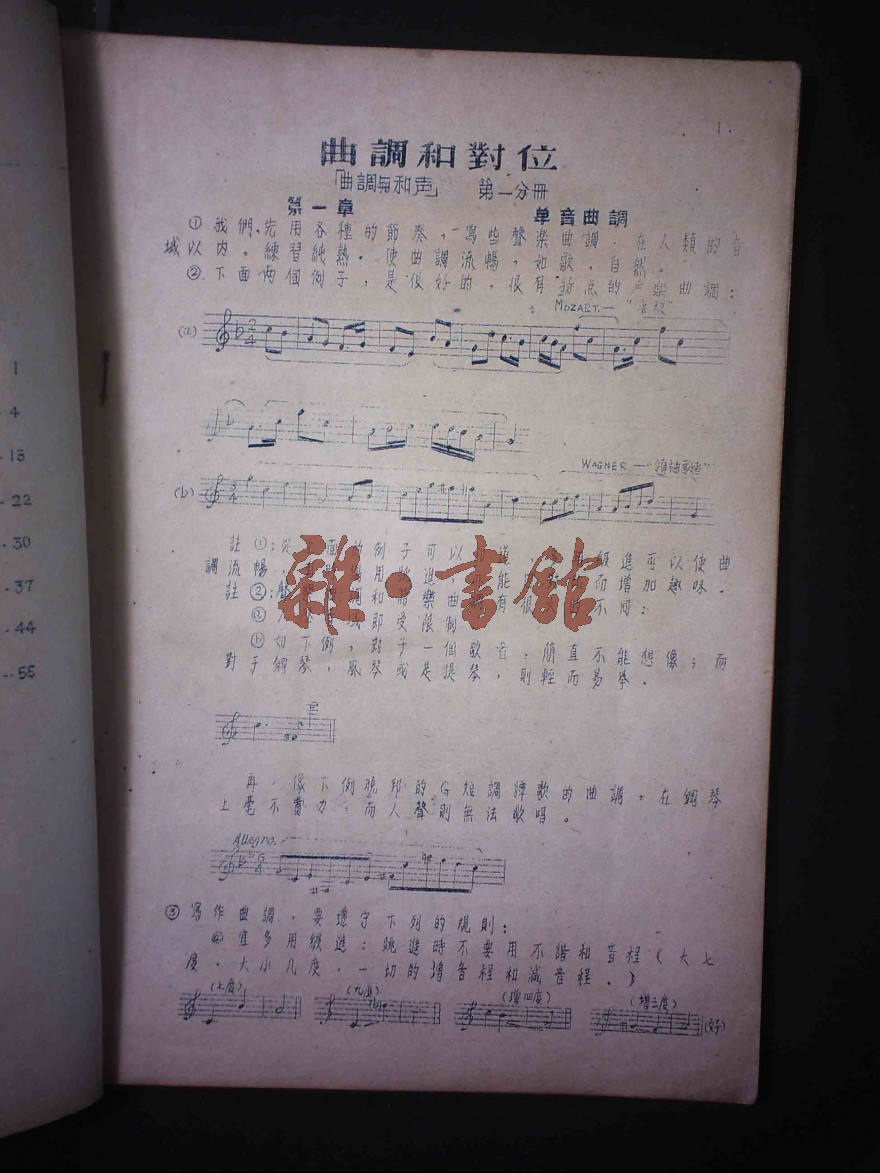 1.
曲調和對位
「曲調與和声」 第二分冊
第一章 单音曲調
① 我們,先用各種的節奏,寫些聲樂曲調.在人類的音
域以内,練習純熟.使曲調流暢,如歌,自然.
② 下面两個例子,是很好的,很有特点的声樂曲調:
MOZART.—
(a)
WAGNER —
(b)
註①:從 面的例子可以 道 級進可以使曲
調流暢 用跳進, 能 而增加趣味.
註②:聲 調和器樂曲 有很 不同:
ⓐ 即受限制
ⓑ 如下例,對于一個歌音,簡直不能想像;而
對于鋼琴,風琴或是提琴,則輕而易举.
再,像下例 的G短調譚歌的曲調,在鋼琴
上毫不費力,而人聲則無法歌唱。
Allegro.
③ 寫作曲調,要遵守下列的規則:
ⓐ 宜多用級進;跳進時不要用不諧和音程(大七
度,大小九度,一切的增音程和減音程.)
(七度) (九度) (增四度) (增二度) (好)
1
4
13
22
30
37
44
55
雜·書館